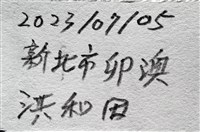 2023/07/05
新北市卯澳
洪和田